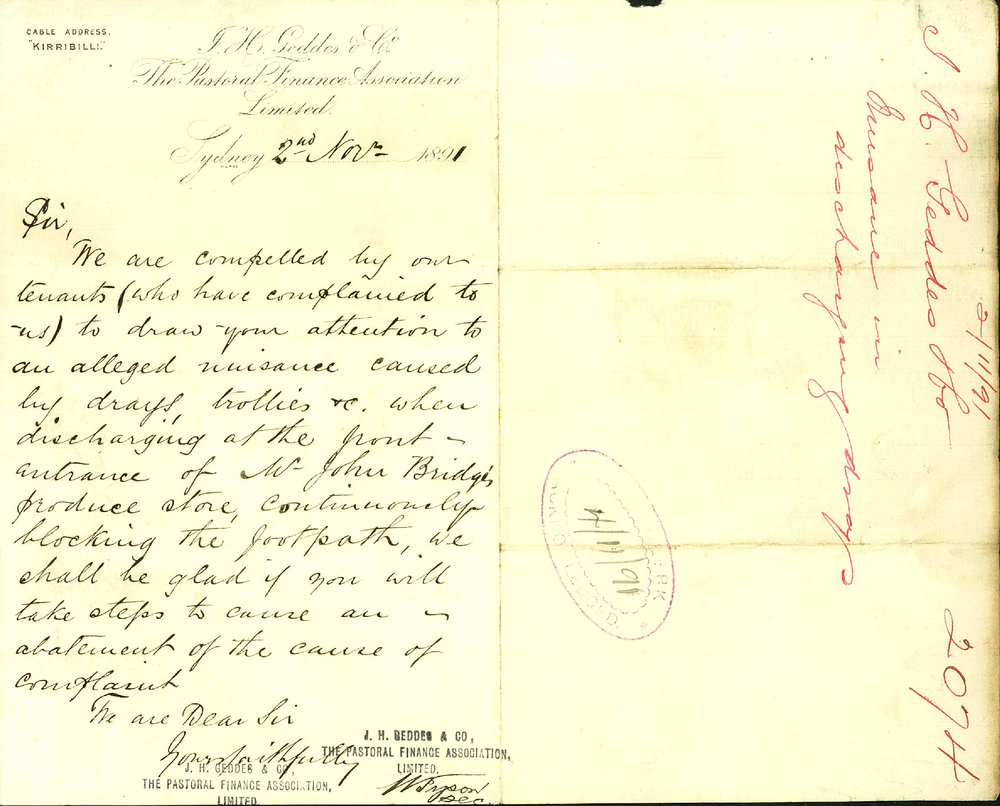 CABLE ADDRESS.
"KIRRIBILLI."
J. H. Geddes & Co
The Pastoral Finance Association
Limited.
Sydney 2nd Novr 1891
Sir,
We are compelled by our
tenants (who have complained to
us) to draw your attention to
an alleged nuisance caused
by drays, trollies &c. when
discharging at the front
entrance of Mr John Bridge's
produce store, continuously
blocking the footpath, we
shall be glad if you will
take steps to cause an
abatement of the cause of
complaint
We are Dear Sir
Yours faithfully
J. H. GEDDES & CO,
THE PASTORAL FINANCE ASSOCIATION,
LIMITED.
J. H. GEDDES & CO,
THE PASTORAL FINANCE ASSOCIATION,
LIMITED.
W Tyson
Sec.
J. H. Geddes & Co
2/11/91
Nuisance in
discharging drays
2074
CLERK
4/11/91